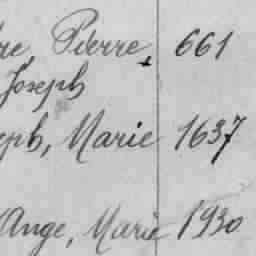 re, Pierre, 661
Joseph
eph, Marie 1637
Ange, Marie 1930